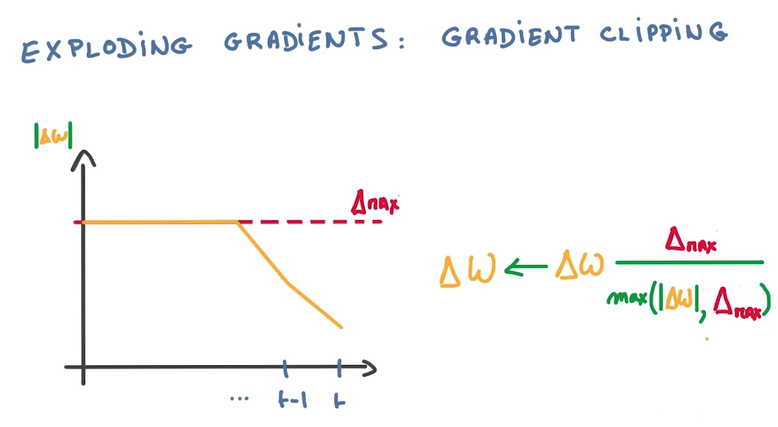 EXPLODiNG GRADiENTS: GRADiENT CLiPPiNG
|ΔW|
Δmax
ΔW ← ΔW Δmax
max(|ΔW|, Δmax)
... t-1 t